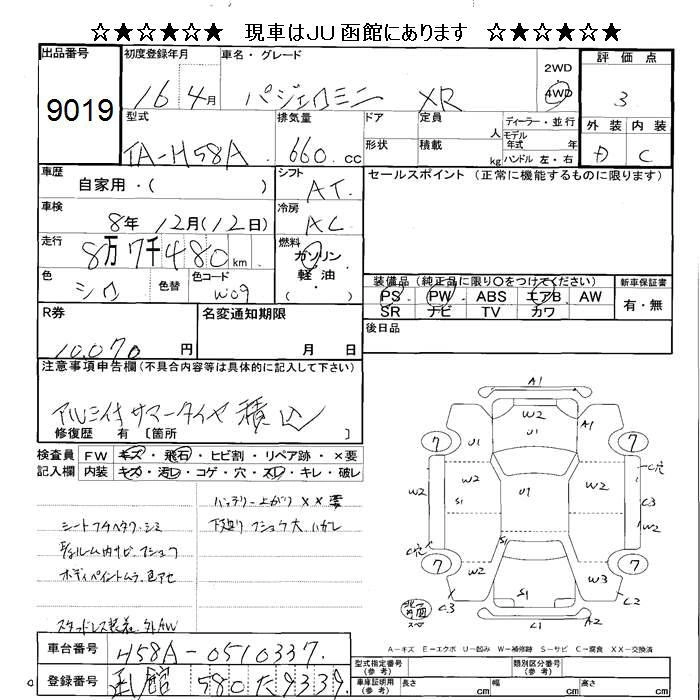 ☆★☆★☆★ 現車はJU函館にあります ☆★☆★☆★
出品番号 初度登録年月 車名・グレード 2WD 評価点
9019 16年 4月 パジェロミニ XR 4WD 3
型式 排気量 ドア 定員 人 ディーラー・並行 外装 内装
TA-H58A 660 cc 形状 積載 kg モデル年式 年 ハンドル 左・右 D C
車歴 自家用・( ) シフト AT セールスポイント(正常に機能するものに限ります)
車検 8年 12月(12日) 冷房 AC
走行 8万7千480km 燃料 ガソリン 軽油・( )
色 シロ 色替 色コード W09
装備品(純正品に限り〇をつけてください) 新車保証書
PS PW ABS エアB AW 有・無
SR ナビ TV カワ
R券 10,070 円 名変通知期限 月 日 後日品
注意事項申告欄(不具合内容等は具体的に記入して下さい)
アルミ付サマータイヤ積込
修復歴 有 〔箇所 〕
検査員 FW キズ・飛石・ヒビ割・リペア跡・×要
記入欄 内装 キズ・汚レ・コゲ・穴・スレ・キレ・破レ
バッテリー上がり ××要
シートフチヘタク・シミ 下廻りフショク大 ハガレ
E/gルーム内サビ・フショク
ボディペイントムラ・色アセ
スタッドレス装着 外AW
A1
W2
7 U1 U1 A1 7
C穴
W2 S1 U1 W2 C3
W2
C穴 S1
7 W2 W3 7
C3 S1 C2
C1 A2
A-キズ E-エクボ U-凹み W-補修跡 S-サビ C-腐食 XX-交換済
車台番号 H58A-0510337
型式指定番号(参考) 類別区分番号(参考)
登録番号 函館 580 た 9339
車庫証明用(参考) 長さ cm 幅 cm 高さ cm